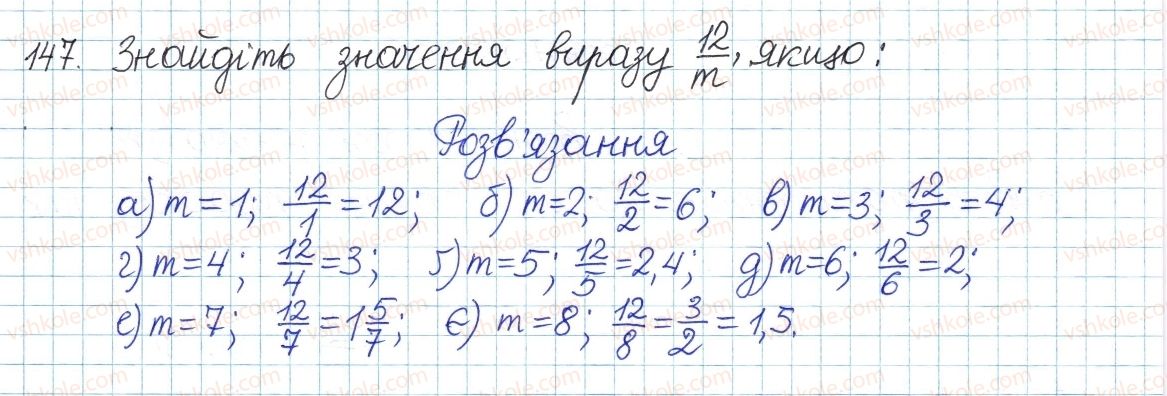 147. Знайдіть значення виразу 12/m, якщо:
Розв'язання
а) m = 1; 12/1 = 12; б) m = 2; 12/2 = 6; в) m = 3; 12/3 = 4;
г) m = 4; 12/4 = 3; ґ) m = 5; 12/5 = 2,4; д) m = 6; 12/6 = 2;
е) m = 7; 12/7 = 1 5/7; є) m = 8; 12/8 = 3/2 = 1,5.